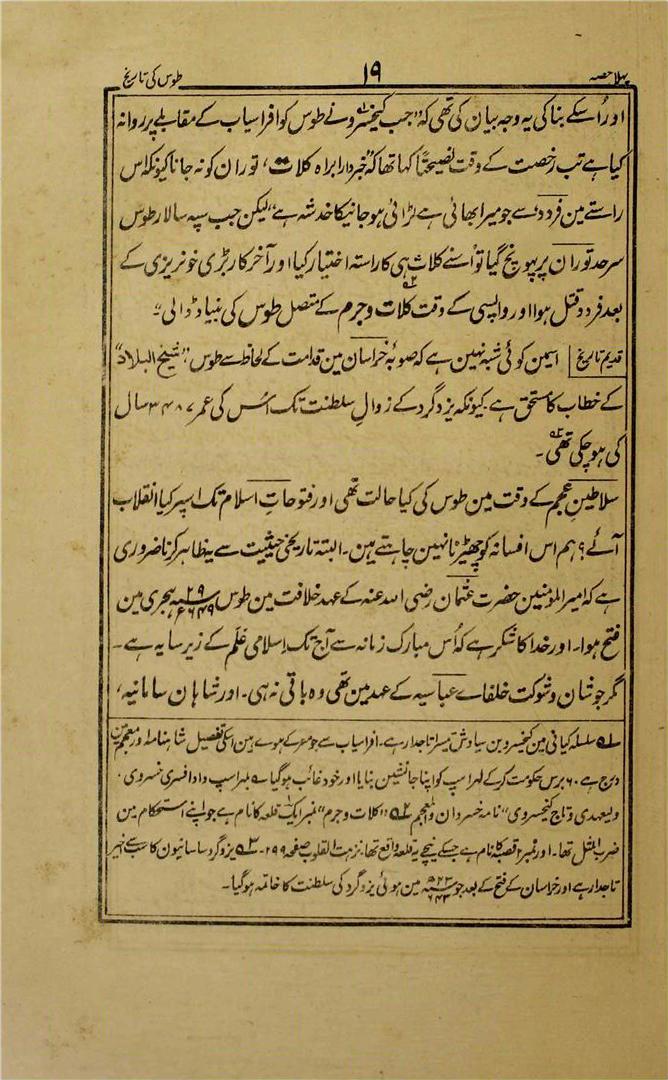 پہلا حصہ ۱۹ طوس کی تاریخ
اور اُسکے بنا کی یہ وجہ بیان کی تھی کہ "جب کیخسرو نے طوس کو افراسیاب کے مقابلے پر روانہ
کیا ہے تب رخصت کے وقت نصیحتاً کہا تھا کہ "خبردار براہ کلات، توران کو نہ جانا کیونکہ اس
راستے مین فردد سے جو میرا بھائی ہے لڑائی ہو جانیکا خدشہ ہے" لیکن جب سپہ سالار طوس
سرحد توران پر پہونچ گیا تو اُسنے کلات ہی کا راستہ اختیار کیا اور آخر کار بڑی خونریزی کے
بعد فردد قتل ہوا اور واپسی کے وقت کلات وجرم کے متصل طوس کی بنیاد ڈالی"۔
قدیم تاریخ | اسمین کوئی شبہ نہین ہے کہ صوبۂ خراسان مین قدامت کے لحاظ سے طوس "شیخ البلاد"
کے خطاب کا مستحق ہے۔ کیونکہ یزدگرد کے زوالِ سلطنت تک اُس کی عمر ۳۴۸۷ سال
کی ہو چکی تھی۔
سلاطینِ عجم کے وقت مین طوس کی کیا حالت تھی اور فتوحاتِ اسلام تک اسپر کیا انقلاب
آئے؟ ہم اس افسانہ کو چھیڑنا نہین چاہتے ہین۔ البتہ تاریخی حیثیت سے یہ ظاہر کرنا ضروری
ہے کہ امیر المومنین حضرت عثمان رضی اللہ عنہ کے عہد خلافت مین طوس ۲۹ ۶۴۹ ہجری مین
فتح ہوا۔ اور خدا کا شکر ہے کہ اُس مبارک زمانہ سے آج تک اسلامی عَلَم کے زیر سایہ ہے۔
گر جو شان و شوکت خلفاے عباسیہ کے عہد مین تھی وہ باقی نہ رہی۔ اور شاہان سامانیہ،
۱؎ سلسلہ کیانی مین کیخسرو بن سیاوش تیسرا تاجدار ہے۔ افراسیاب سے جو معرکے ہوے ہین اسکی تفصیل شاہنامہ اور معجم مین
درج ہے۔ ۶۰ برس حکومت کرکے لہراسپ کو اپنا جانشین بنایا اور خود غائب ہوگیا ؎ بلہراسپ داد افسری خسروی۔
ولیعہدی و تاج کیخسروی" نامہ خسروان و معجم ۲؎ "کلات وجرم" نمبر ایک قلعہ کا نام ہے جو اپنے استحکام مین
ضرب المثل تھا۔ اور نمبر۲ قصبہ کا نام ہے جسکے نیچے یہ قلعہ واقع تھا۔ نزہت القلوب صفحہ ۲۹۹۔ ۳؎ یزدگرد ساسانیون کا سب سے
تاجدار ہے اور خراسان کے فتح کے بعد جو ۲۳ ۶۴۳ مین ہوئی یزدگرد کی سلطنت کا خاتمہ ہوگیا۔